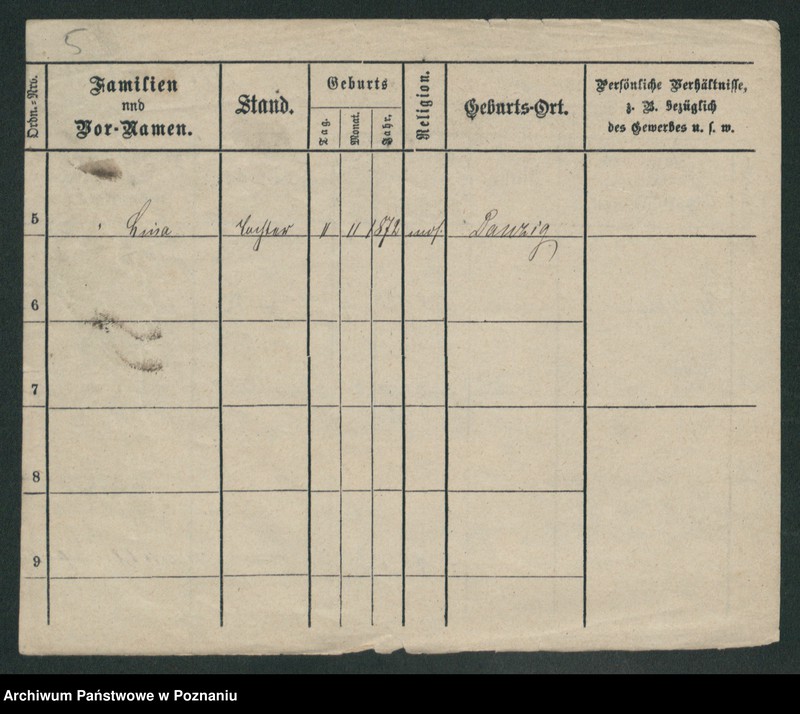 5
Ordn.=Nro.
Familien
nnd
Vor-Namen.
Stand.
Geburts
Tag.
Monat.
Jahr.
Religion.
Geburts-Ort.
Persönliche Verhältnisse,
z. B. bezüglich
des Gewerbes u. s. w.
5 Lina Tochter 11 11 1872 mos. Danzig
6
7
8
9
Archiwum Państwowe w Poznaniu